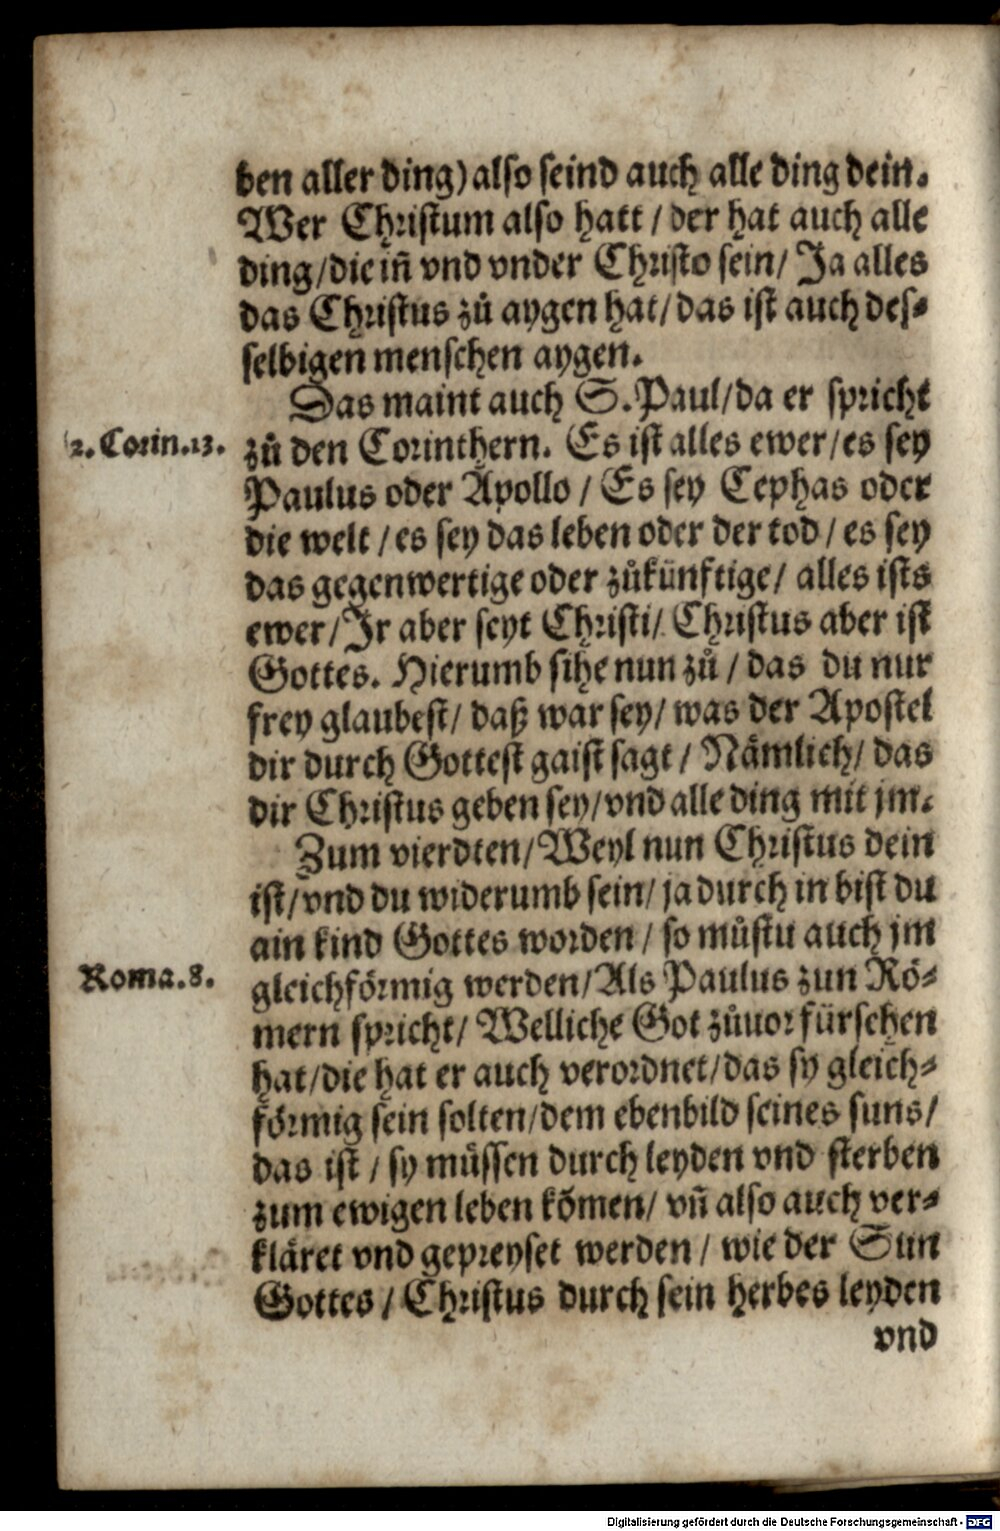 ben aller ding) also seind auch alle ding dein.
Wer Christum also hatt / der hat auch alle
ding / die iñ vnd vnder Christo sein / Ja alles
das Christus zů aygen hat / das ist auch des⸗
selbigen menschen aygen.
Das maint auch S. Paul / da er spricht
2. Corin. 13.
zů den Corinthern. Es ist alles ewer / es sey
Paulus oder Apollo / Es sey Cephas oder
die welt / es sey das leben oder der tod / es sey
das gegenwertige oder zůkünftige / alles ists
ewer / Ir aber seyt Christi / Christus aber ist
Gottes. Hierumb sihe nun zů / das du nur
frey glaubest / daß war sey / was der Apostel
dir durch Gottest gaist sagt / Nämlich / das
dir Christus geben sey / vnd alle ding mit jm.
Zum vierdten / Weyl nun Christus dein
ist / vnd du widerumb sein / ja durch in bist du
ain kind Gottes worden / so můstu auch jm
Roma. 8.
gleichförmig werden / Als Paulus zun Rö⸗
mern spricht / Welliche Got zůuor fürsehen
hat / die hat er auch verordnet / das sy gleich⸗
förmig sein solten / dem ebenbild seines suns /
das ist / sy müssen durch leyden vnd sterben
zum ewigen leben kõmen / vñ also auch ver⸗
kläret vnd gepreyset werden / wie der Sun
Gottes / Christus durch sein herbes leyden
vnd
Digitalisierung gefördert durch die Deutsche Forschungsgemeinschaft - DFG